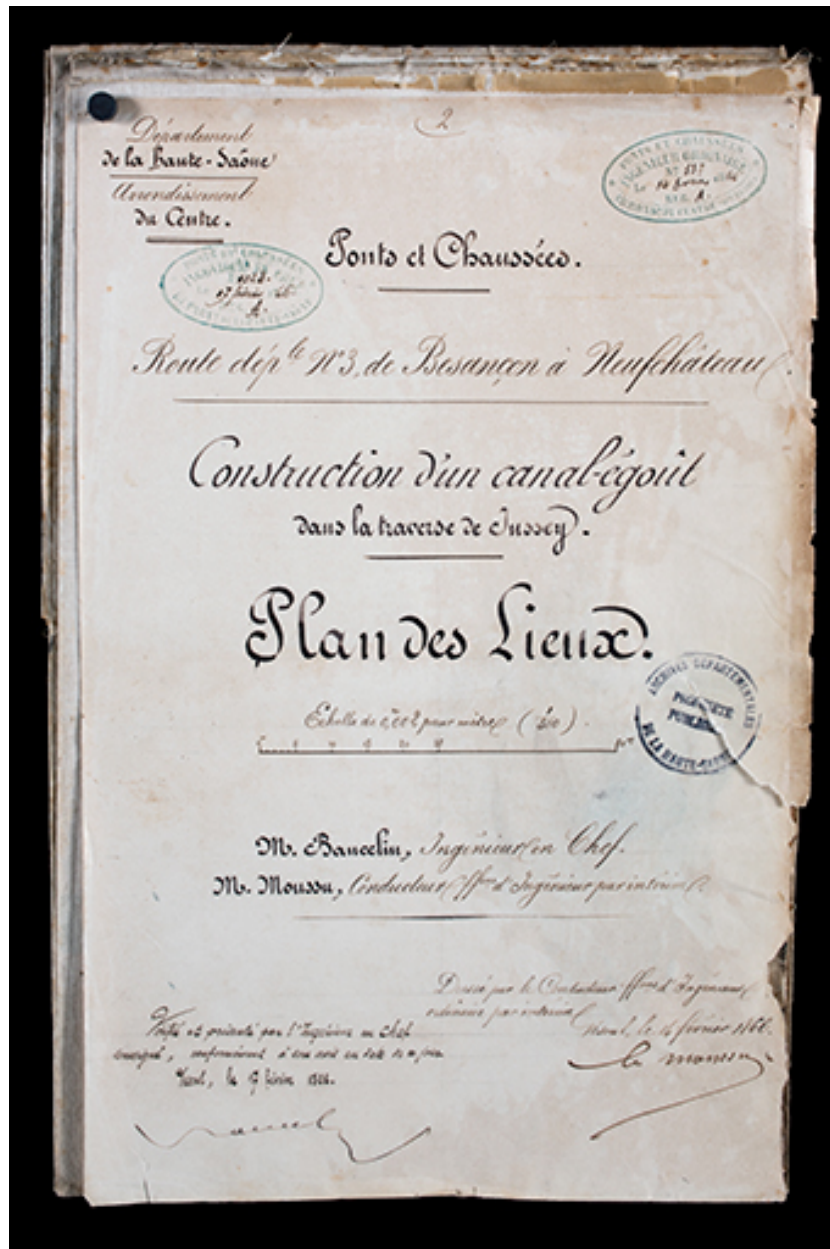 2
Département
de la Haute-Saône
Arrondissement
du Centre.
PONTS ET CHAUSSÉES
INGÉNIEUR ORDINAIRE
Ponts et Chaussées.
Route dép.le N°3, de Besançon à Neufchâteau.
Construction d'un canal-égoût
dans la traverse de Jussey.
Plan des Lieux.
Echelle de 0,002 pour mètre
ARCHIVES DÉPARTEMENTALES
PROPRIÉTÉ
PUBLIQUE
DE LA HAUTE-SAÔNE
M. Bancelin, Ingénieur en Chef.
M. Moussu, Conducteur ffons d'Ingénieur par intérim.
Dressé par le Conducteur ffons d'Ingénieur
ordinaire par intérim
Vesoul, le février 1866.
Vérifié et présenté par l'Ingénieur en Chef
soussigné, conformément à son avis en date de ce jour.
Vesoul, le 17 février 1866.